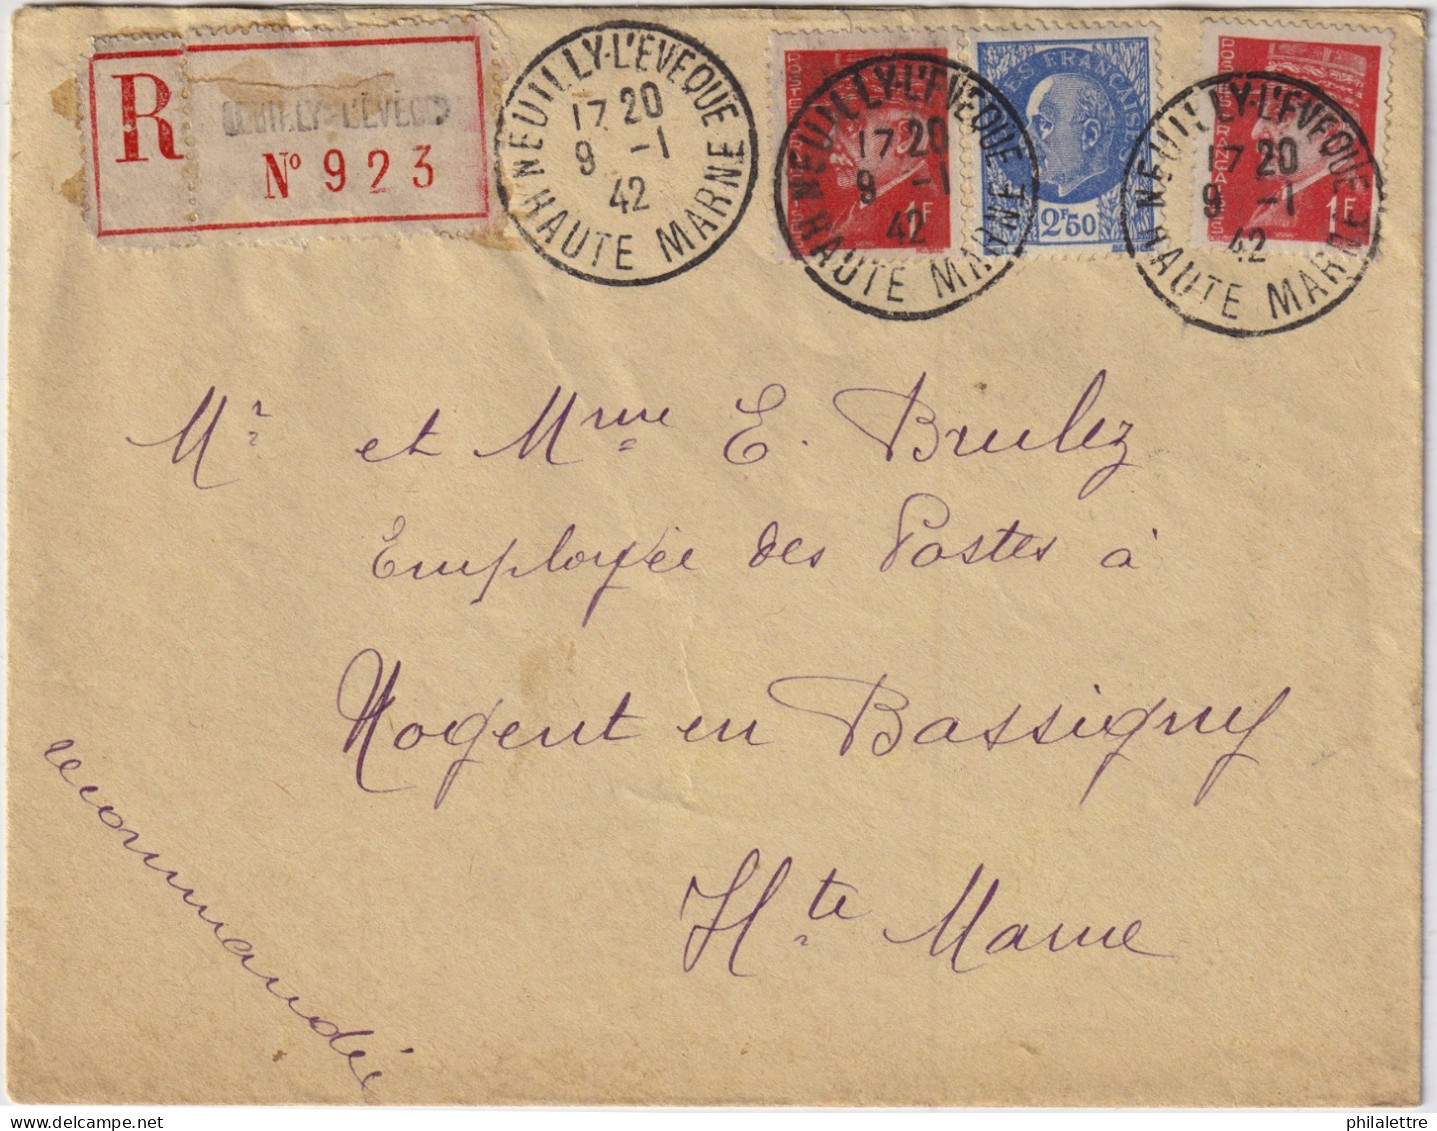 R
NEUILLY-L'ÉVÊQUE
N° 923
NEUILLY-L'EVEQUE
17 20
9 -1
42
HAUTE MARNE
NEUILLY-L'EVEQUE
17 20
9 -1
42
HAUTE MARNE
1F
POSTES FRANÇAISES
2F50
NEUILLY-L'EVEQUE
17 20
9 -1
42
HAUTE MARNE
POSTES FRANÇAISES
1F
Mr et Mme E. Brulez
Employée des Postes à
Nogent en Bassigny
Hte Marne
recommandée
philalettre